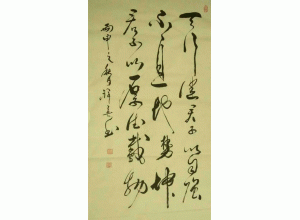 天行健君子以自强
不息地势坤
君子以厚德载物
丙申之春